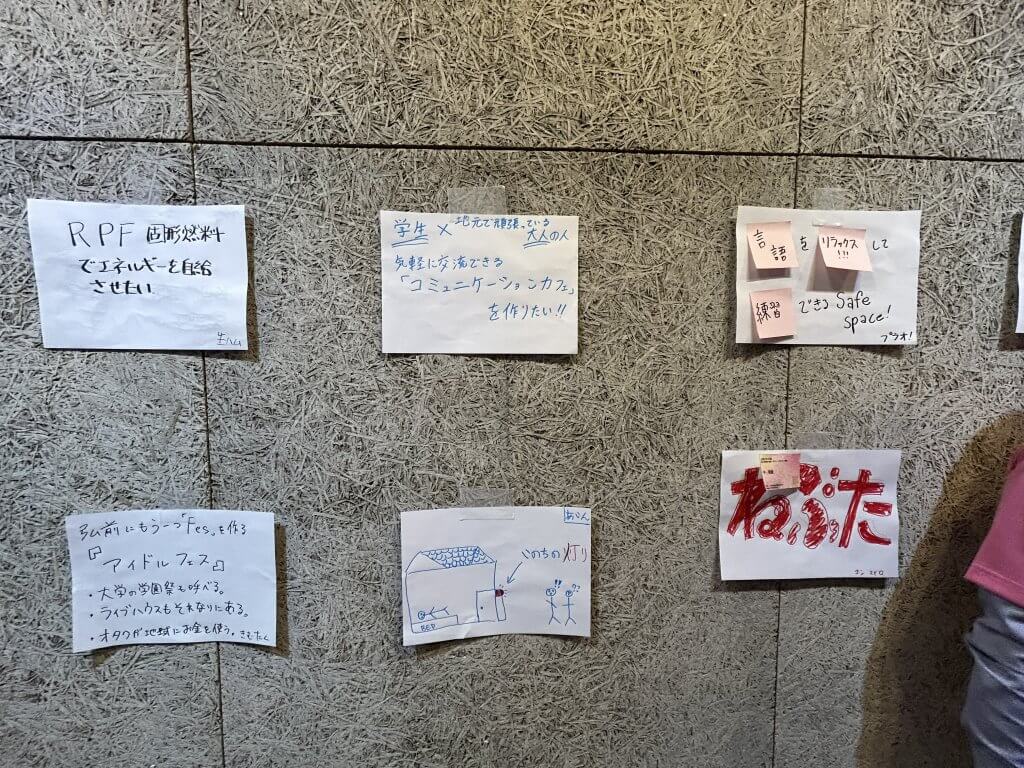 RPF 固形燃料
でエネルギーを自給
させたい
生ハム
学生 × 地元で頑張っている
大人の人
気軽に交流できる
「コミュニケーションカフェ」
を作りたい!!
言語 を リラックス!!! して
練習 できる Safe
space!
プラオ!
弘前にもう一つ「Fes」を作る
『アイドルフェス』
・大学の学園祭も呼べる。
・ライブハウスもそれなりにある。
・オタクが地域にお金を使う。きむたく
あらん
いのちの灯り
BED
ねぷた